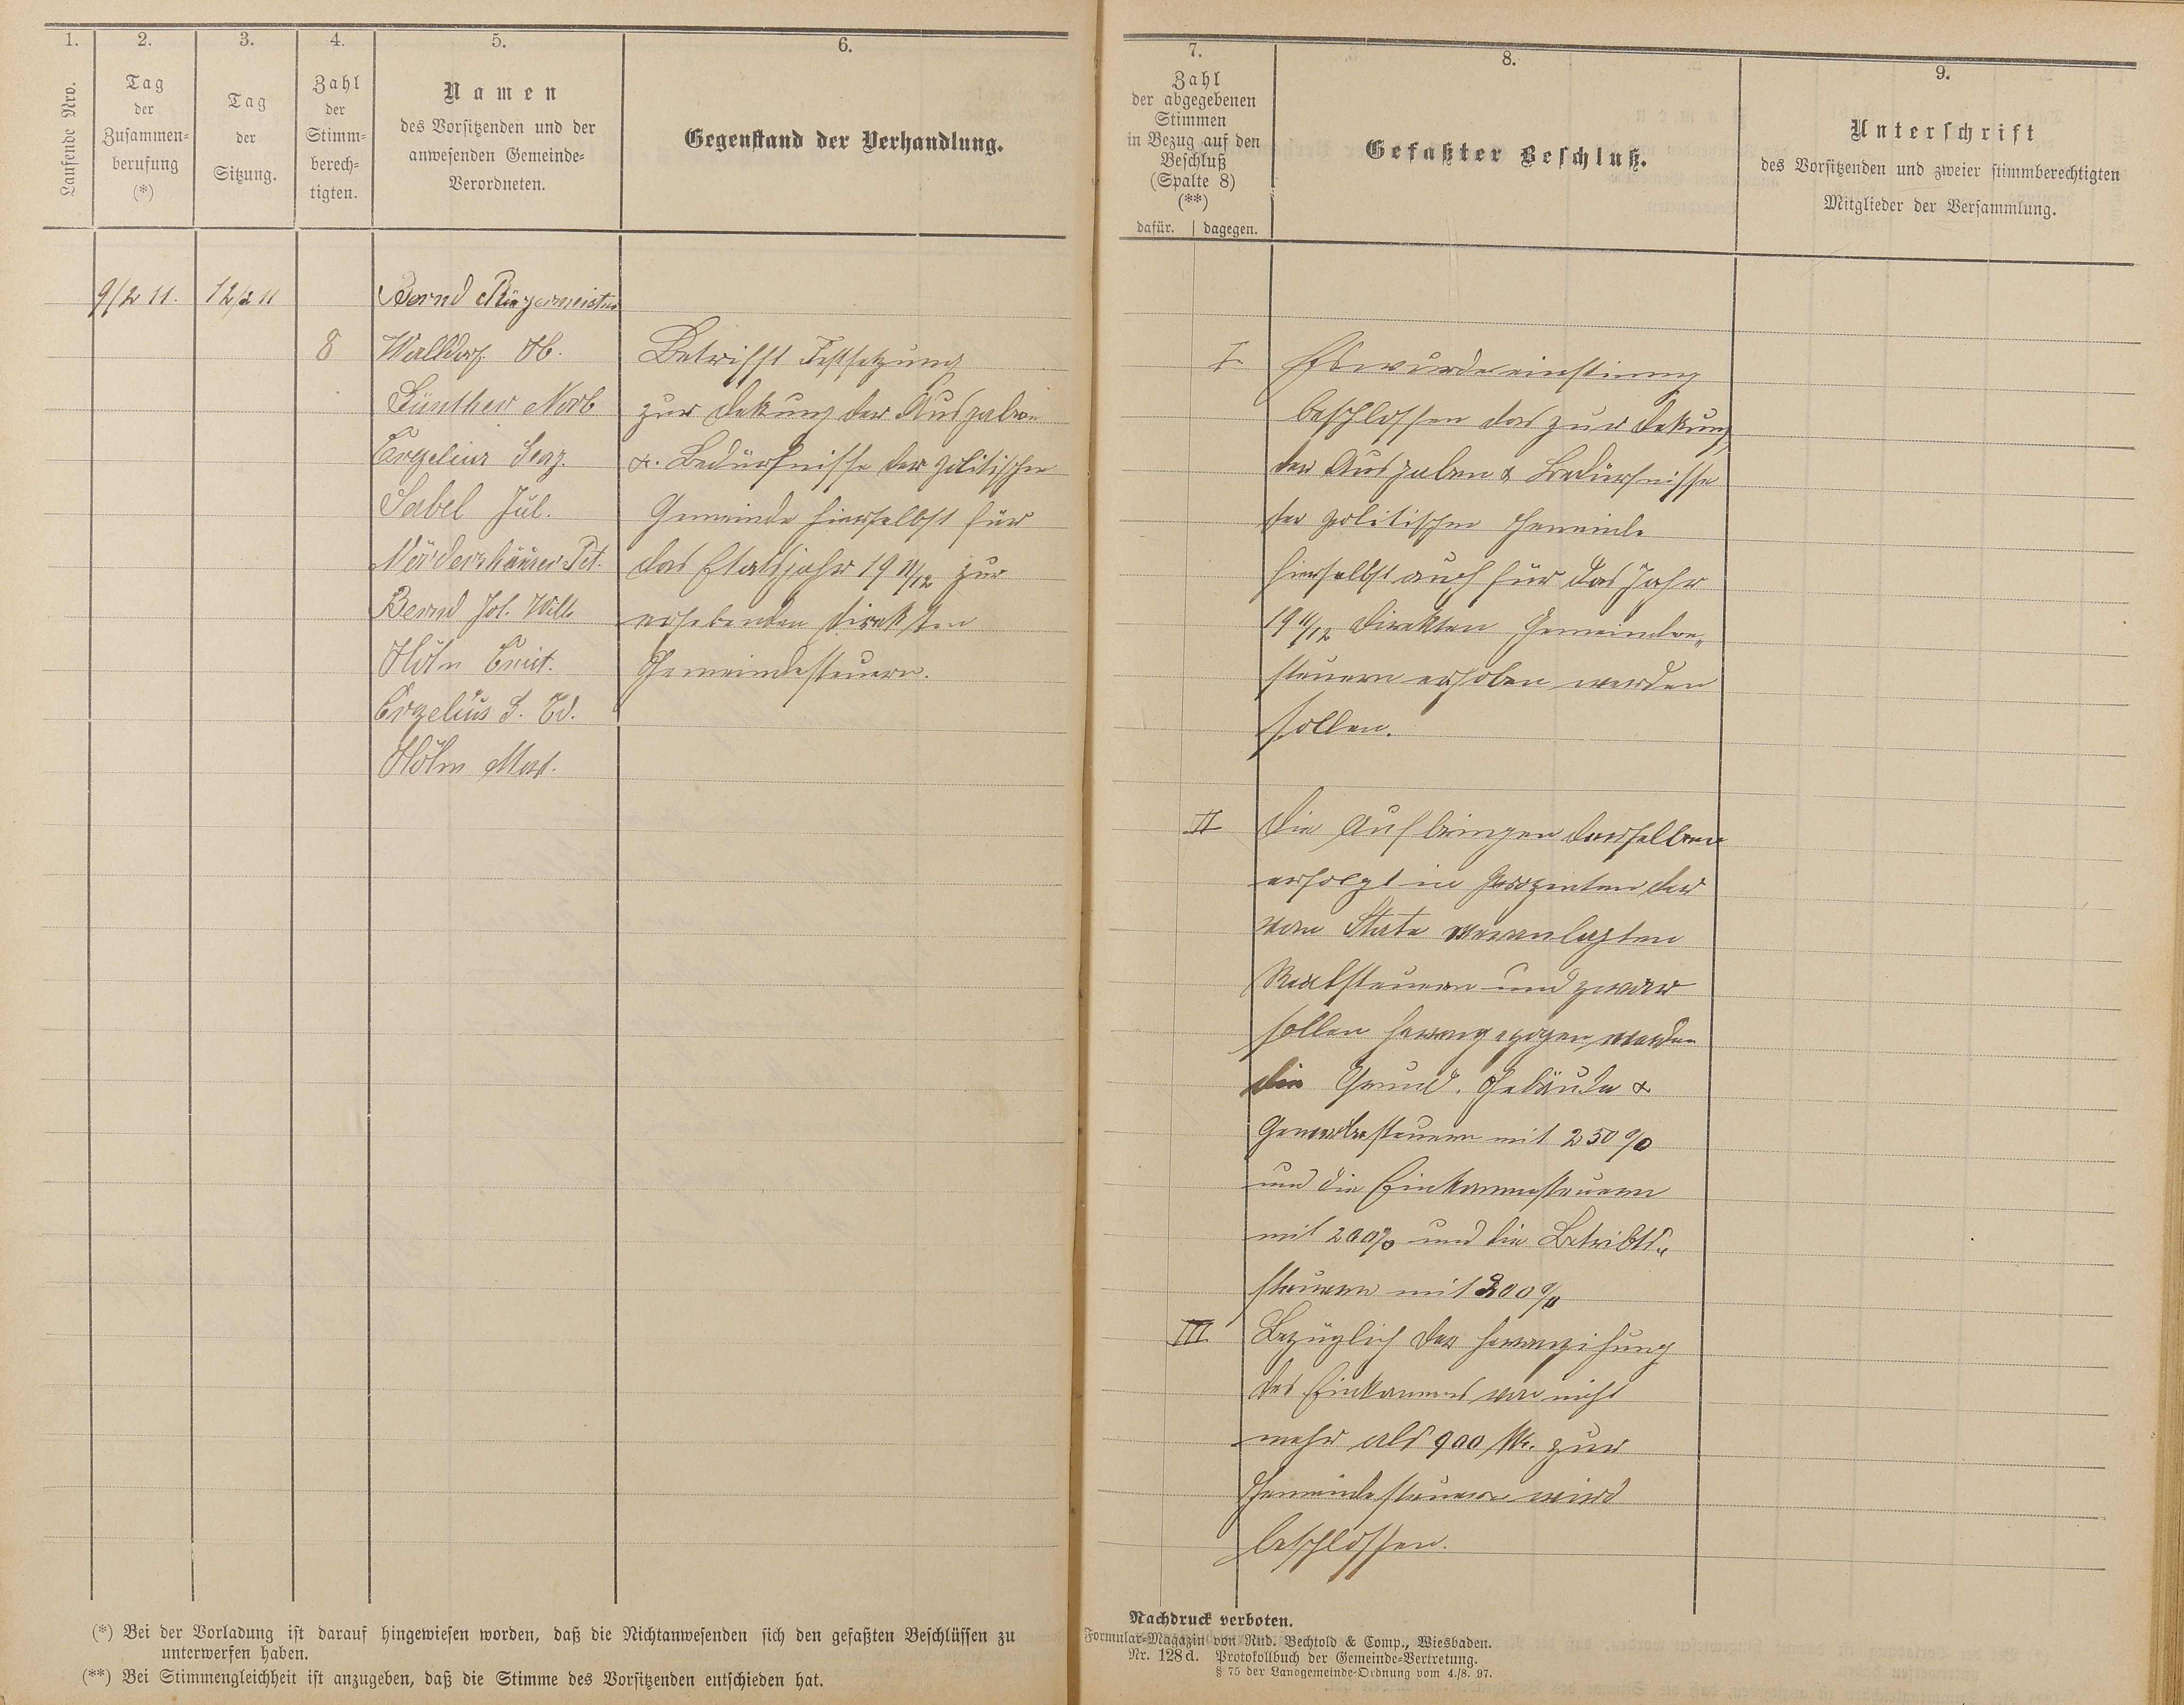 1.
Laufende Nro.
2.
Tag
der
Zusammen-
berufung
(*)
3.
Tag
der
Sitzung.
4.
Zahl
der
Stimm-
berech-
tigten.
5.
Namen
des Vorsitzenden und der
anwesenden Gemeinde-
Verordneten.
6.
Gegenstand der Verhandlung.
9/2 11.
12/2 11
8
Bernd Bürgermeister
Walldorf
Günther Norb
Sabel Jul.
Nördershäuser Pet.
Bernd Jos. Wilh
Höhn
Höhn
Betrifft Festsetzung
zur Dekung der Ausgaben
& Bedürfnisse der politischen
Gemeinde hierselbst für
das Etatsjahr 19 11/12 zur
erhebenden direkten
Gemeindesteuern.
7.
Zahl
der abgegebenen
Stimmen
in Bezug auf den
Beschluß
(Spalte 8)
(**)
dafür. | dagegen.
8.
Gefaßter Beschluß.
9.
Unterschrift
des Vorsitzenden und zweier stimmberechtigten
Mitglieder der Versammlung.
I. Es wurde einstimmig
beschlossen das zur Dekung
der Ausgaben & Bedürfnisse
der politischen Gemeinde
hierselbst auch für das Jahr
19 11/12 direkten Gemeinde„
steuern erhoben werden
sollen.
II Die Aufbringen derselben
erfolgt in Prozenten der
vom State veranlagten
Realsteuern und zwar
sollen herangezogen werden
die Grund. Gebäude &
Gewerbesteuern mit 250 %
und die Einkommsteuern
mit 200% und die Betribts„
steuern mit 300 %
III Bezüglich der heranzihung
des Einkommens von nicht
mehr als 900 Mk. zur
Gemeindesteuern wird
beschlossen.
(*) Bei der Vorladung ist darauf hingewiesen worden, daß die Nichtanwesenden sich den gefaßten Beschlüssen zu
unterwerfen haben.
(**) Bei Stimmengleichheit ist anzugeben, daß die Stimme des Vorsitzenden entschieden hat.
Nachdruck verboten.
Formular-Magazin von Rud. Bechtold & Comp., Wiesbaden.
Nr. 128d. Protokollbuch der Gemeinde-Vertretung.
§ 75 der Landgemeinde-Ordnung vom 4./8. 97.